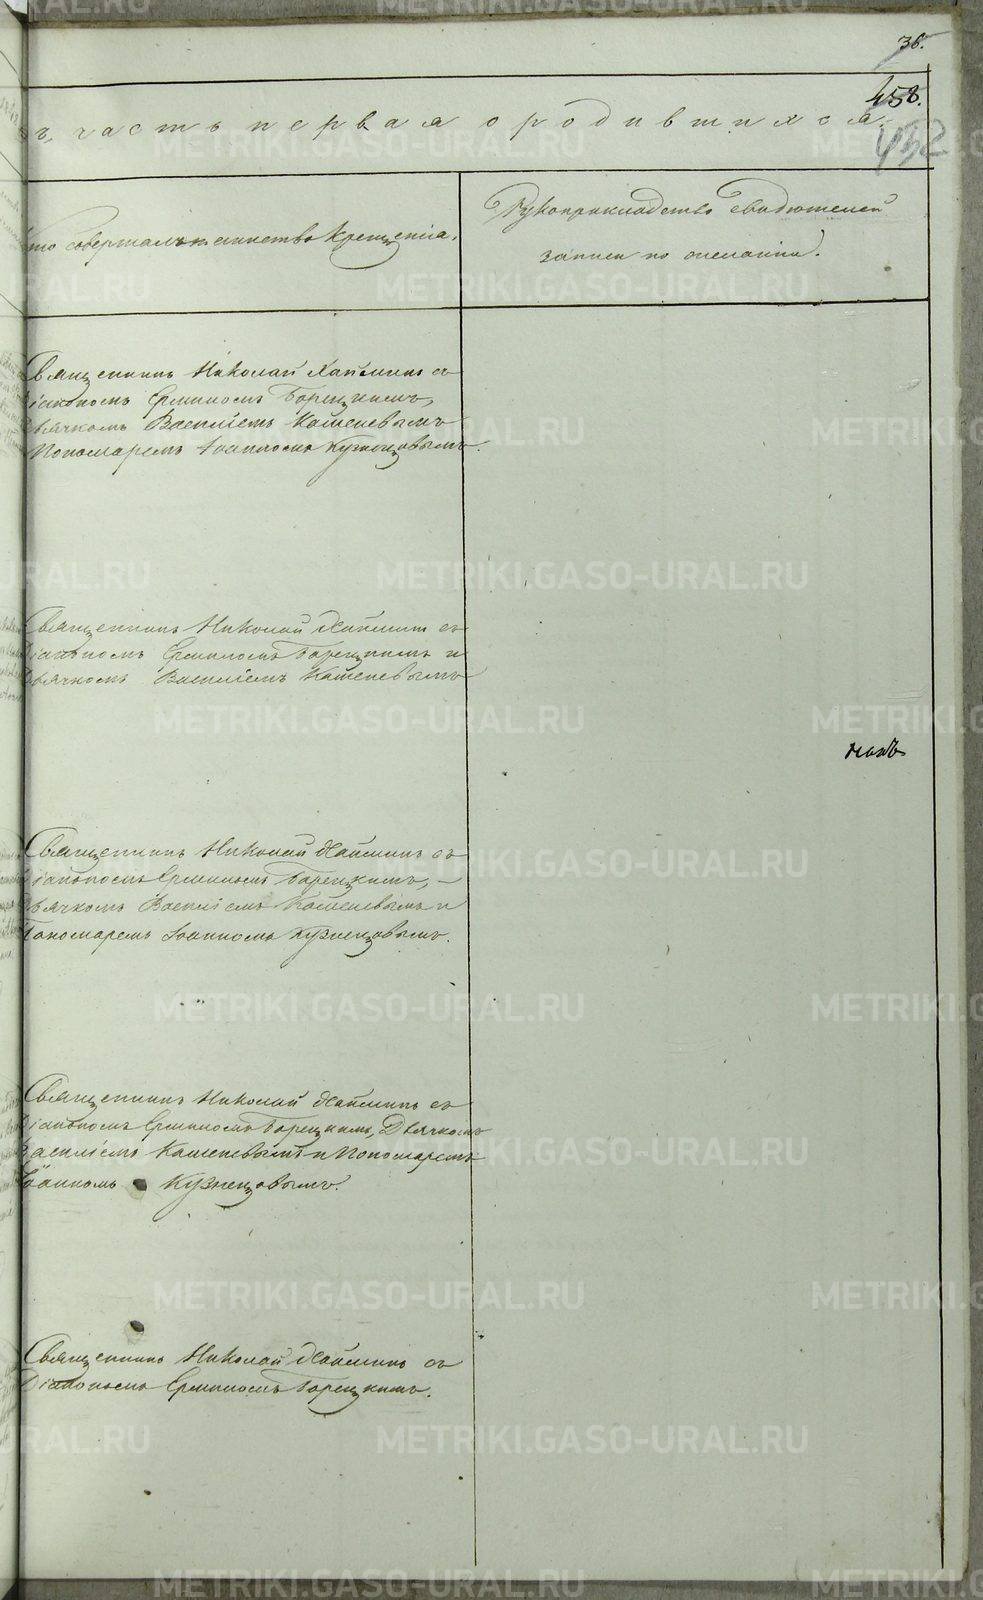 38.
458.
452
ъ, часть первая о родившихся.
Кто совершалъ таинство крещенія.
Рукоприкладство свидѣтелей
записи по желанію.
Священникъ Николай Хаймин съ
Діакономъ Ермиломъ Борецкимъ,
Дьячкомъ Василіемъ Кашеневымъ
Пономаремъ Іоанномъ Кузнецовымъ.
Священникъ Николай Хаймин съ
Діакономъ Ермиломъ Борецкимъ и
Дьячкомъ Василіемъ Кашеневымъ
Священникъ Николай Хайминъ съ
Діакономъ Ермиломъ Борецкимъ,
Дьячкомъ Василіемъ Кашеневымъ и
Пономаремъ Іоанномъ Кузнецовымъ.
Священникъ Николай Хайминъ съ
Діакономъ Ермиломъ Борецкимъ, Дьячкомъ
Василіемъ Кашеневымъ и Пономаремъ
Іоанномъ Кузнецовымъ.
Священникъ Николай Хайминъ съ
Діакономъ Ермиломъ Борецкимъ.
METRIKI.GASO-URAL.RU